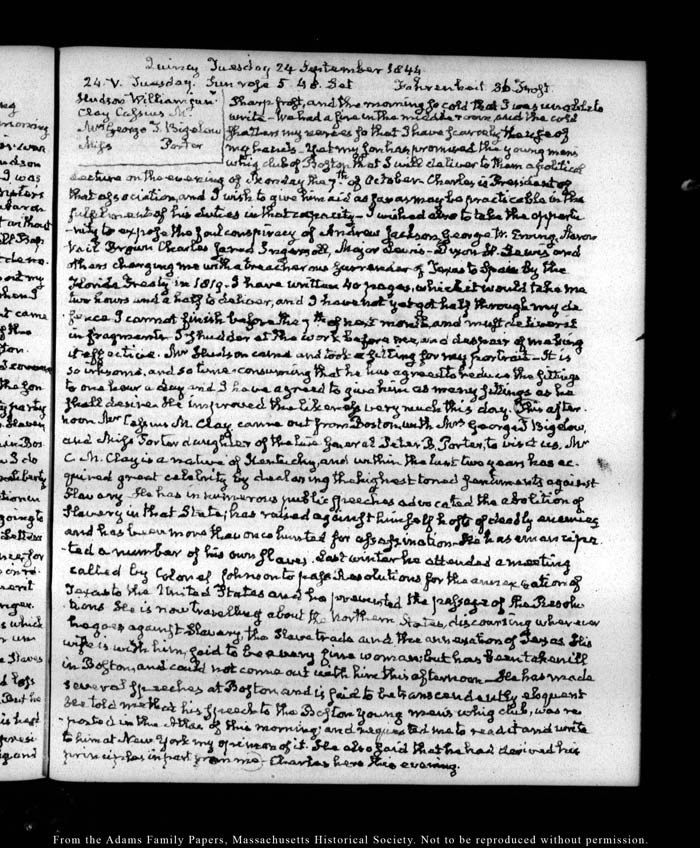 Quincy Tuesday 24 September 1844
24. V. Tuesday. Sun rose 5 48. Set Fahrenheit 36 Frost
Hudson William jun.r
Clay Cassius M.
Mrs George T. Bigelow
Miss Porter
Sharp frost, and the morning so cold that I was unable to
write. We had a fire in the middle room, and the cold
shatters my nerves so that I have scarcely the use of
my hands. Yet my son has promised the young mens
whig club of Boston, that I will deliver to them a political
Lecture on the evening of Monday the 7th of October. Charles is President of
that association, and I wish to give him aid as far as may be practicable in the
fulfilment of his duties in that capacity. I wished also to take the opportu
-nity to expose the foul conspiracy of Andrew Jackson, George W. Erving, Aaron
Vail Brown Charles Jared Ingersoll, Major Lewis Dixon H. Lewis and
others charging me with a treacherous surrender of Texas to Spain by the
Florida Treaty in 1819. I have written 40 pages, which it would take me
two hours and a half to deliver, and I have not yet got half through my de
-fence. I cannot finish before the 7th of next month, and must deliver it
in fragments. I shudder at the work before me, and despair of making
it effective. Mr Hudson came and took a sitting for my portrait. It is
so irksome, and so time-consuming that he has agreed to reduce the sittings
to one hour a day and I have agreed to give him as many sittings as he
shall desire. He improved the likeness very much this day. This after
noon Mr Cassius M. Clay came out from Boston, with Mrs George T Bigelow,
and Miss Porter daughter of the late General Peter B. Porter, to visit us. Mr
C. M. Clay is a native of Kentucky, and within the last two years has ac
-quired great celebrity by declaring the highest toned sentiments against
Slavery. He has in numerous public speeches advocated the abolition of
Slavery in that State; has raised against himself hosts of deadly enemies
and has been more than once hunted for assassination. He has emancipa
-ted a number of his own slaves. Last winter he attended a meeting
called by Colonel Johnson to pass Resolutions for the annexation of
Texas to the United States and he prevented the passage of the Resolu
-tions. He is now travelling about the Northern States, discoursing wherever
he goes against Slavery, the Slave trade and the annexation of Texas. His
wife is with him, said to be a very fine woman; but has been taken ill
in Boston, and could not come out with him this afternoon. He has made
several speeches at Boston, and is said to be transcendently eloquent
He told me that his speech to the Boston young men's whig club, was re
-ported in the Atlas of this morning; and requested me to read it and write
to him at New York my opinion of it. He also said that he had derived his
principles in part from me. Charles here this evening.
From the Adams Family Papers, Massachusetts Historical Society. Not to be reproduced without permission.